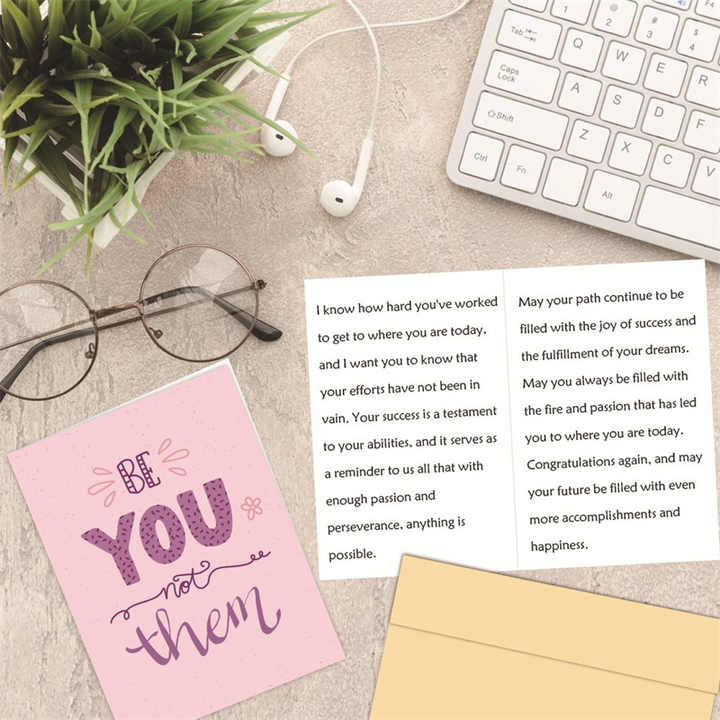 Tab
Q
W
E
R
Caps
Lock
A
S
D
F
Shift
Z
X
C
V
Ctrl
Fn
Alt
1
2
3
4
I know how hard you've worked
to get to where you are today,
and I want you to know that
your efforts have not been in
vain. Your success is a testament
to your abilities, and it serves as
a reminder to us all that with
enough passion and
perseverance, anything is
possible.
May your path continue to be
filled with the joy of success and
the fulfillment of your dreams.
May you always be filled with
the fire and passion that has led
you to where you are today.
Congratulations again, and may
your future be filled with even
more accomplishments and
happiness.
BE
YOU
not
them